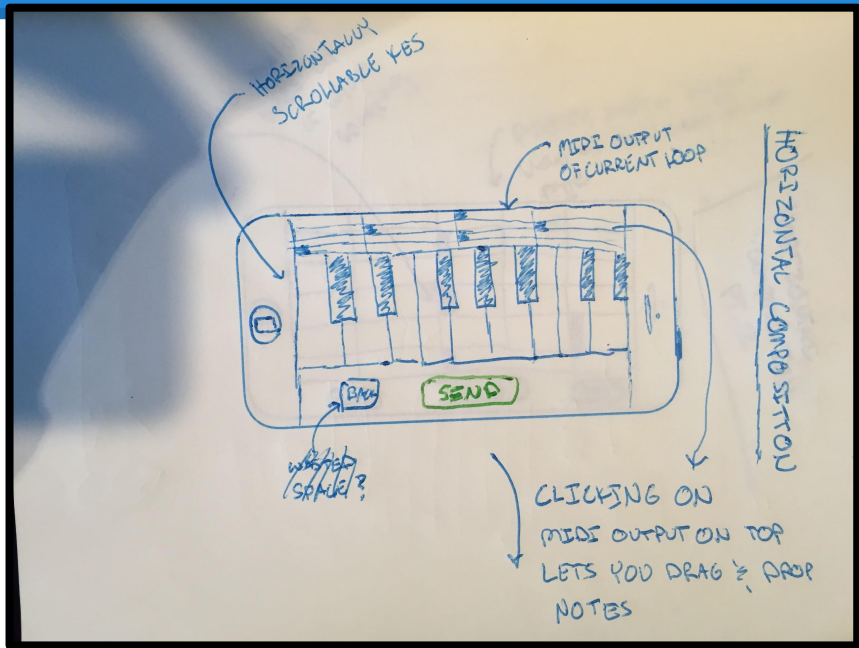 HORIZONTALLY
SCROLLABLE KES
MIDI OUTPUT
OF CURRENT LOOP
HORIZONTAL COMPOSITION
BACK
SEND
WASTED
SPACE?
CLICKING ON
MIDI OUTPUT ON TOP
LETS YOU DRAG & DROP
NOTES